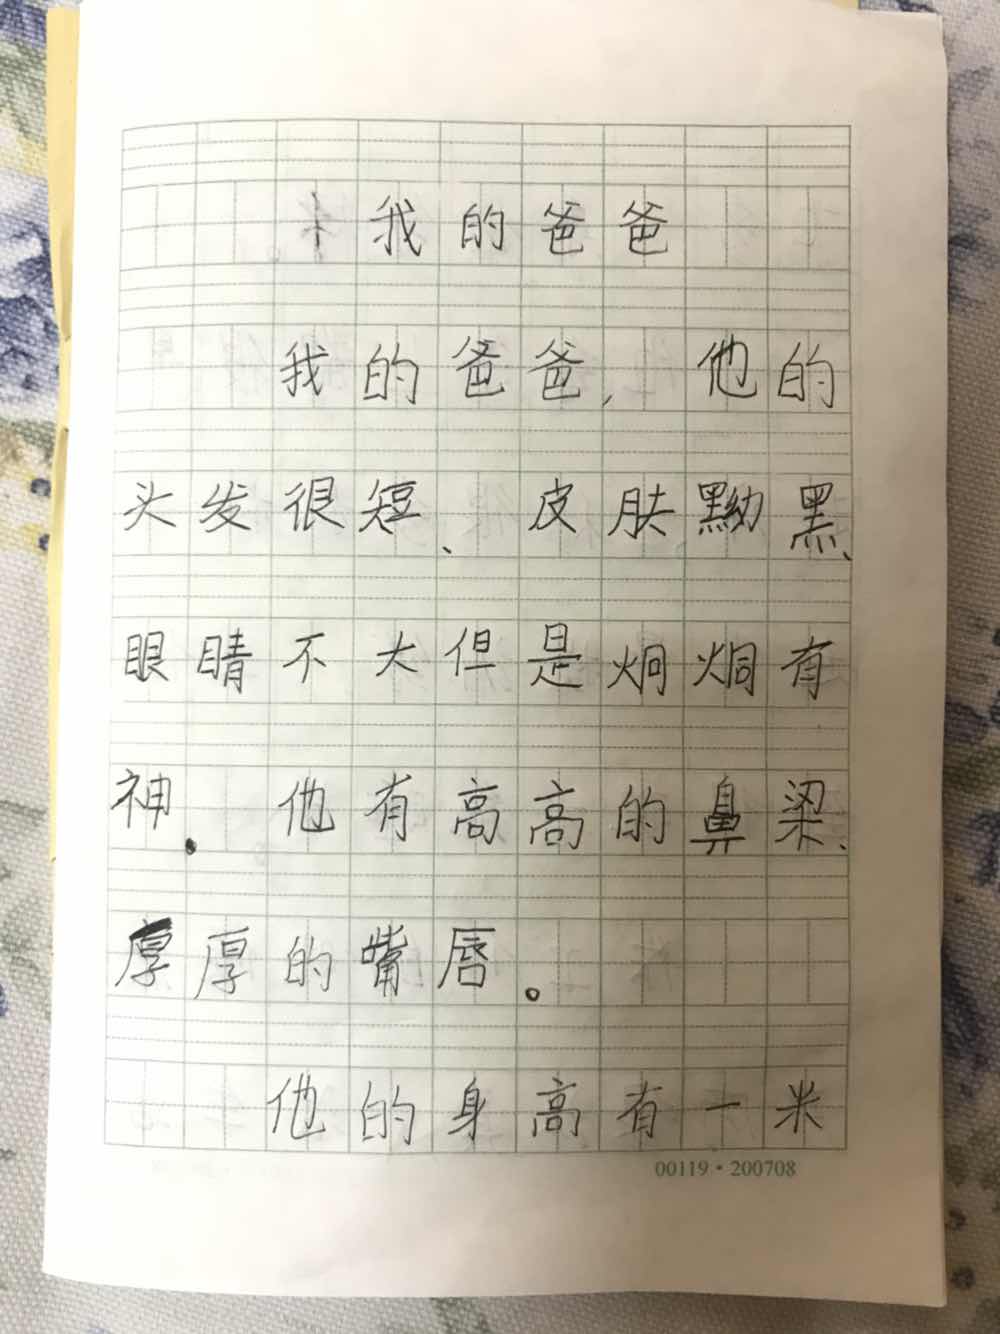 我的爸爸
我的爸爸，他的
头发很短、皮肤黝黑、
眼睛不大但是炯炯有
神．他有高高的鼻梁、
厚厚的嘴唇．
他的身高有一米
00119·200708